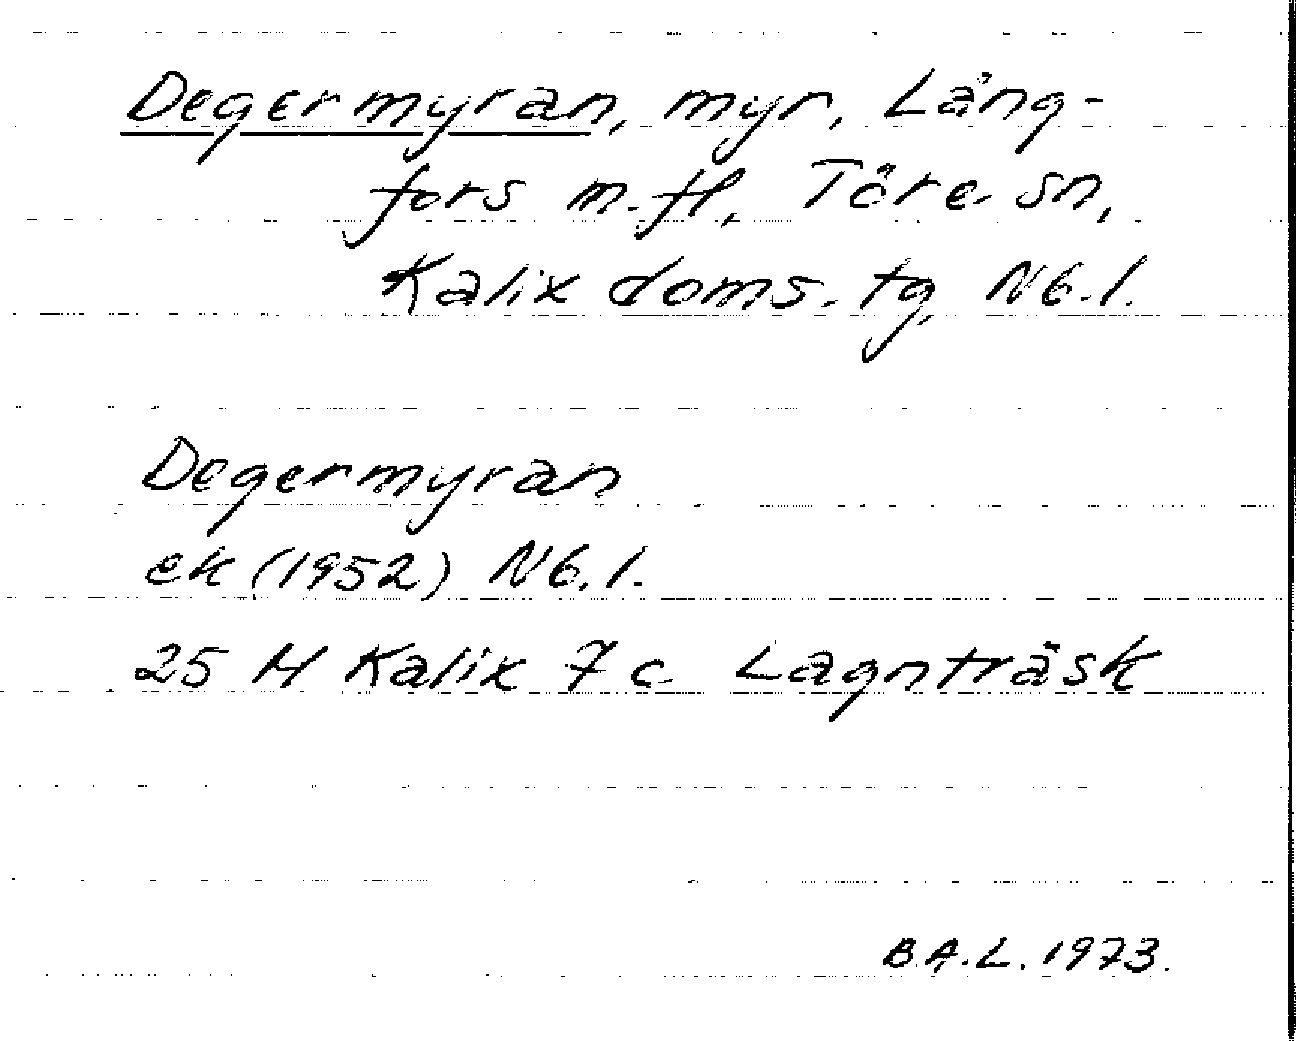 Degermyran, myr, Lång-
fors m.fl, Töre sn,
Kalix doms. tg, Nb.l.
Degermyran
ek (1952) Nb.l.
25 M Kalix 7 c Lagnträsk
B.A.L. 1973.